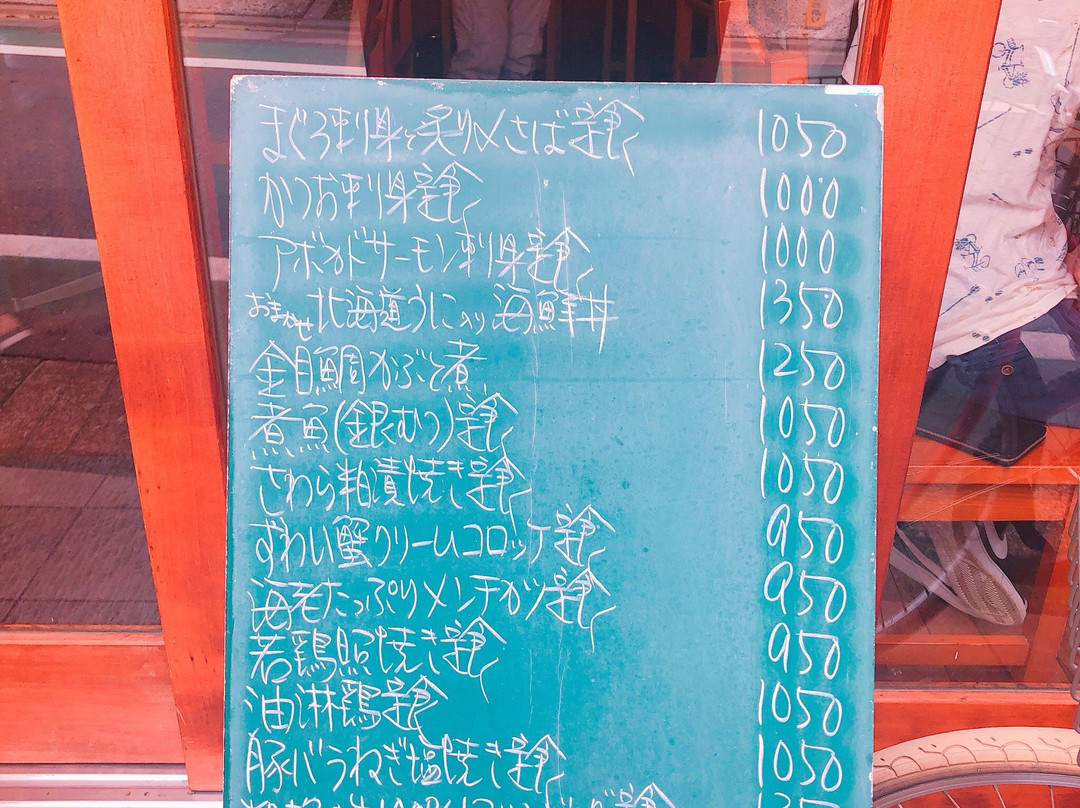 まぐろ刺身と炙り〆さば定食 1050
かつお刺身定食 1000
アボカドサーモン刺身定食 1000
おまかせ北海道うに入り海鮮丼 1350
金目鯛かぶと煮 1250
煮魚(銀むつ)定食 1050
さわら粕漬焼き定食 1050
ずわい蟹クリームコロッケ定食 950
海老たっぷりメンチカツ定食 950
若鶏照焼き定食 950
油淋鶏定食 1050
豚バラねぎ塩焼き定食 1050